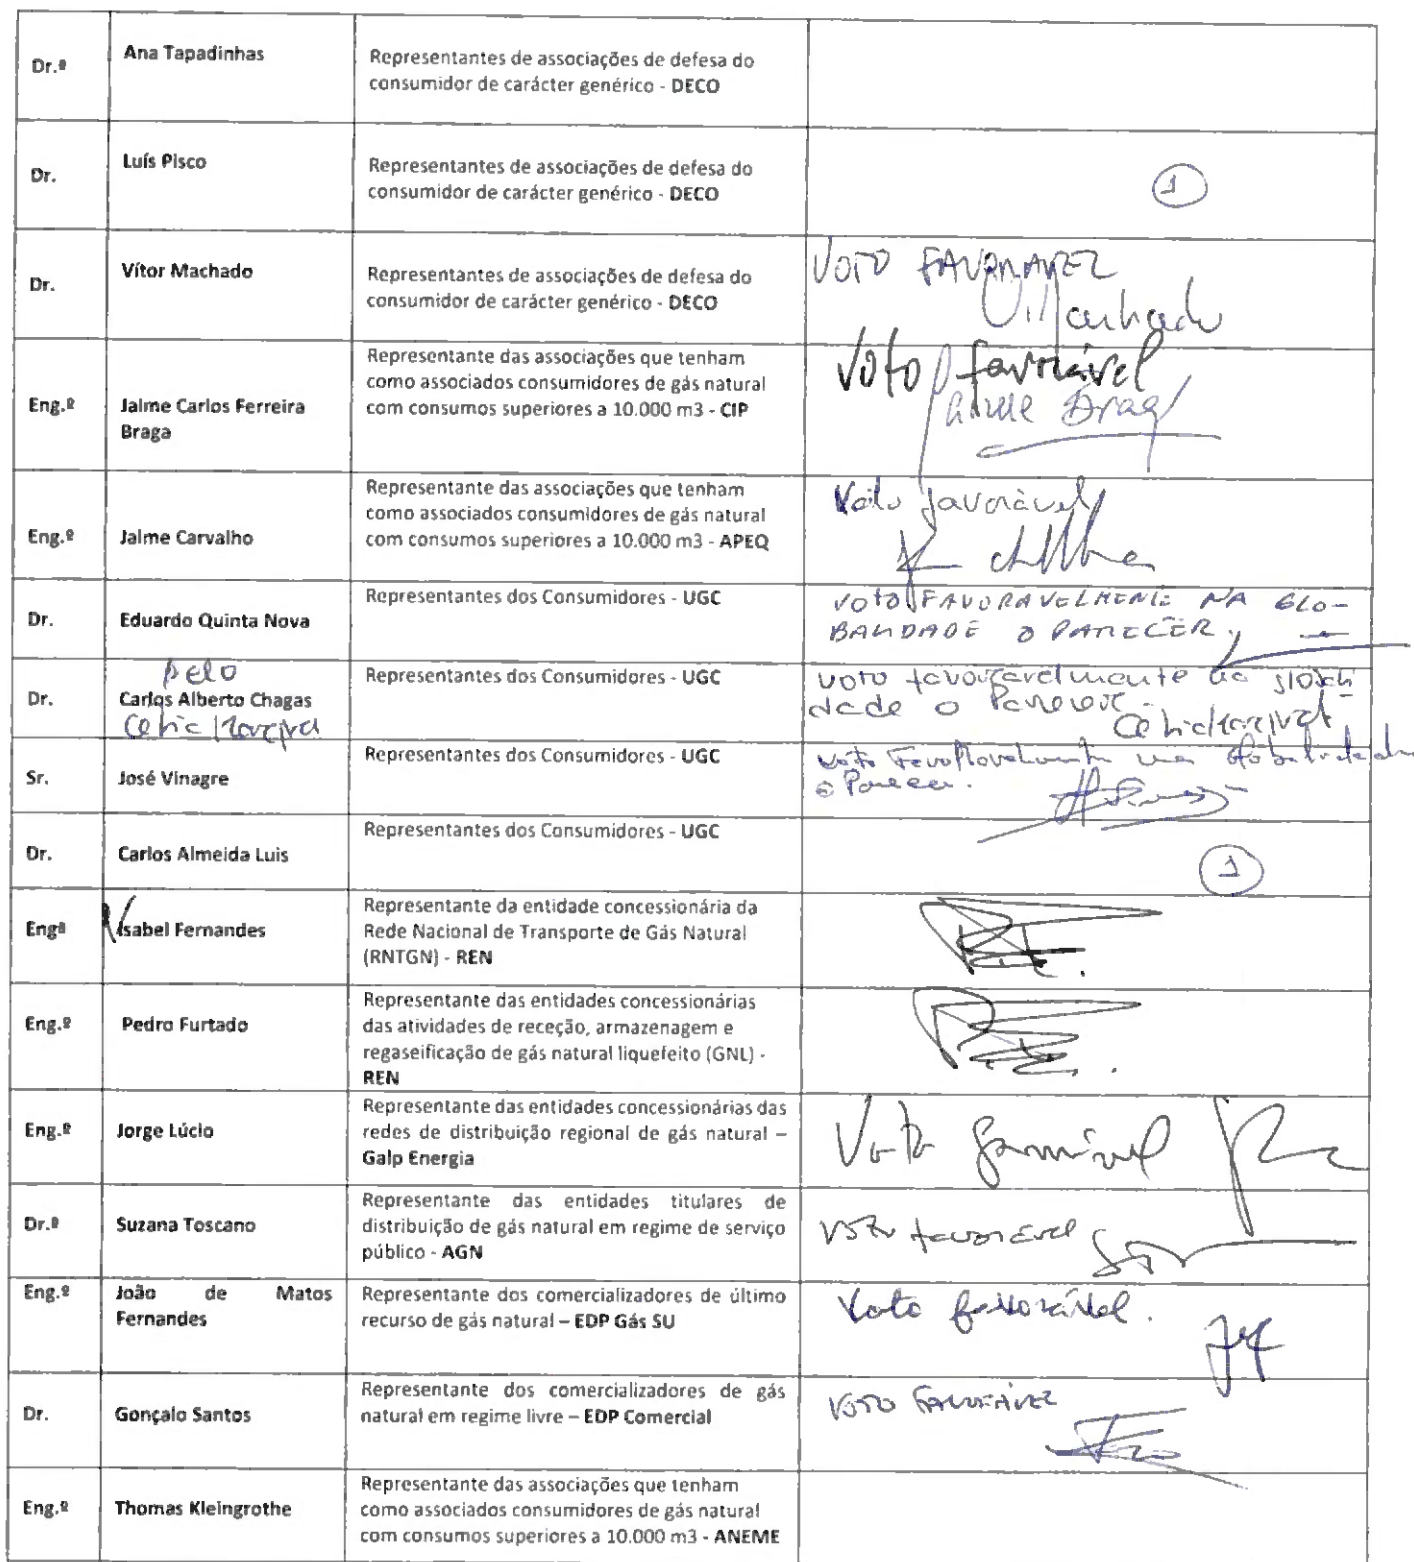 Dr.ª
Ana Tapadinhas
Representantes de associações de defesa do
consumidor de carácter genérico - DECO
Dr.
Luís Pisco
Representantes de associações de defesa do
consumidor de carácter genérico - DECO
1
Dr.
Vítor Machado
Representantes de associações de defesa do
consumidor de carácter genérico - DECO
VOTO FAVORAVEL
VMachado
Eng.º
Jaime Carlos Ferreira
Braga
Representante das associações que tenham
como associados consumidores de gás natural
com consumos superiores a 10.000 m3 - CIP
Voto favorável
Jaime Braga
Eng.º
Jaime Carvalho
Representante das associações que tenham
como associados consumidores de gás natural
com consumos superiores a 10.000 m3 - APEQ
Voto favorável
Dr.
Eduardo Quinta Nova
Representantes dos Consumidores - UGC
VOTO FAVORAVELMENTE NA GLO-
BALIDADE O PARECER,
Dr.
pelo
Carlos Alberto Chagas
Representantes dos Consumidores - UGC
voto favoravelmente na globali
dade o Parecer.
Sr.
José Vinagre
Representantes dos Consumidores - UGC
voto Favoravelmente na globalidade
o Parecer.
Dr.
Carlos Almeida Luis
Representantes dos Consumidores - UGC
1
Engª
Isabel Fernandes
Representante da entidade concessionária da
Rede Nacional de Transporte de Gás Natural
(RNTGN) - REN
Eng.º
Pedro Furtado
Representante das entidades concessionárias
das atividades de receção, armazenagem e
regaseificação de gás natural liquefeito (GNL) -
REN
Eng.º
Jorge Lúcio
Representante das entidades concessionárias das
redes de distribuição regional de gás natural –
Galp Energia
Voto favorável
Dr.ª
Suzana Toscano
Representante das entidades titulares de
distribuição de gás natural em regime de serviço
público - AGN
voto favorável
Eng.º
João de Matos
Fernandes
Representante dos comercializadores de último
recurso de gás natural – EDP Gás SU
Voto favorável.
Dr.
Gonçalo Santos
Representante dos comercializadores de gás
natural em regime livre – EDP Comercial
VOTO FAVORÁVEL
Eng.º
Thomas Kleingrothe
Representante das associações que tenham
como associados consumidores de gás natural
com consumos superiores a 10.000 m3 - ANEME